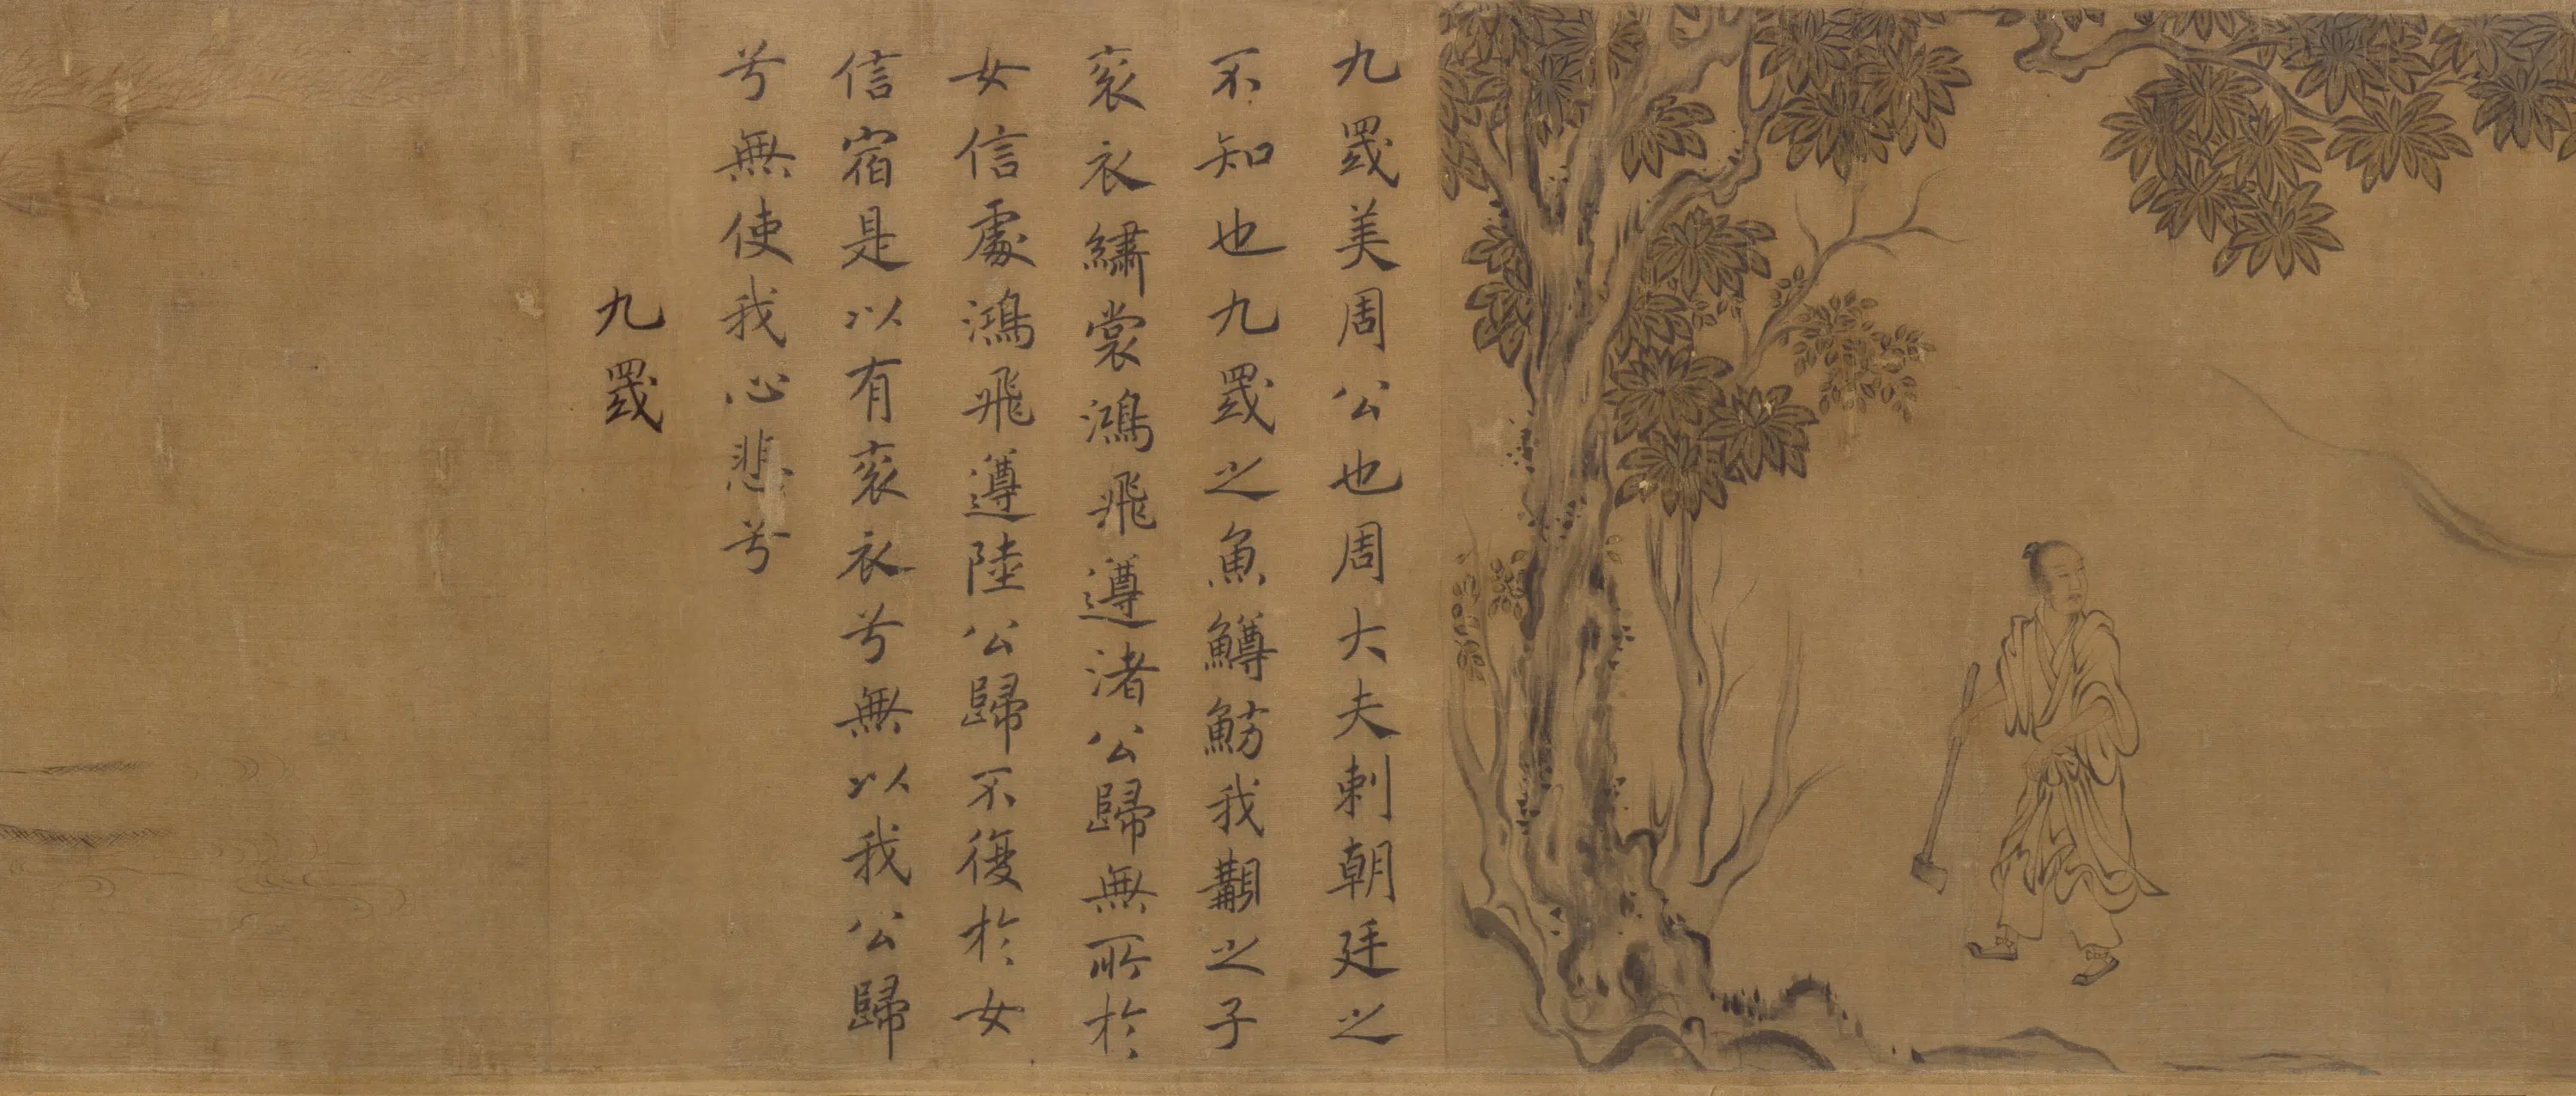 九罭美周公也周大夫刺朝廷之
不知也九罭之魚鱒魴我覯之子
衮衣繡裳鴻飛遵渚公歸無所於
女信處鴻飛遵陸公歸不復於女
信宿是以有衮衣兮無以我公歸
兮無使我心悲兮
九罭